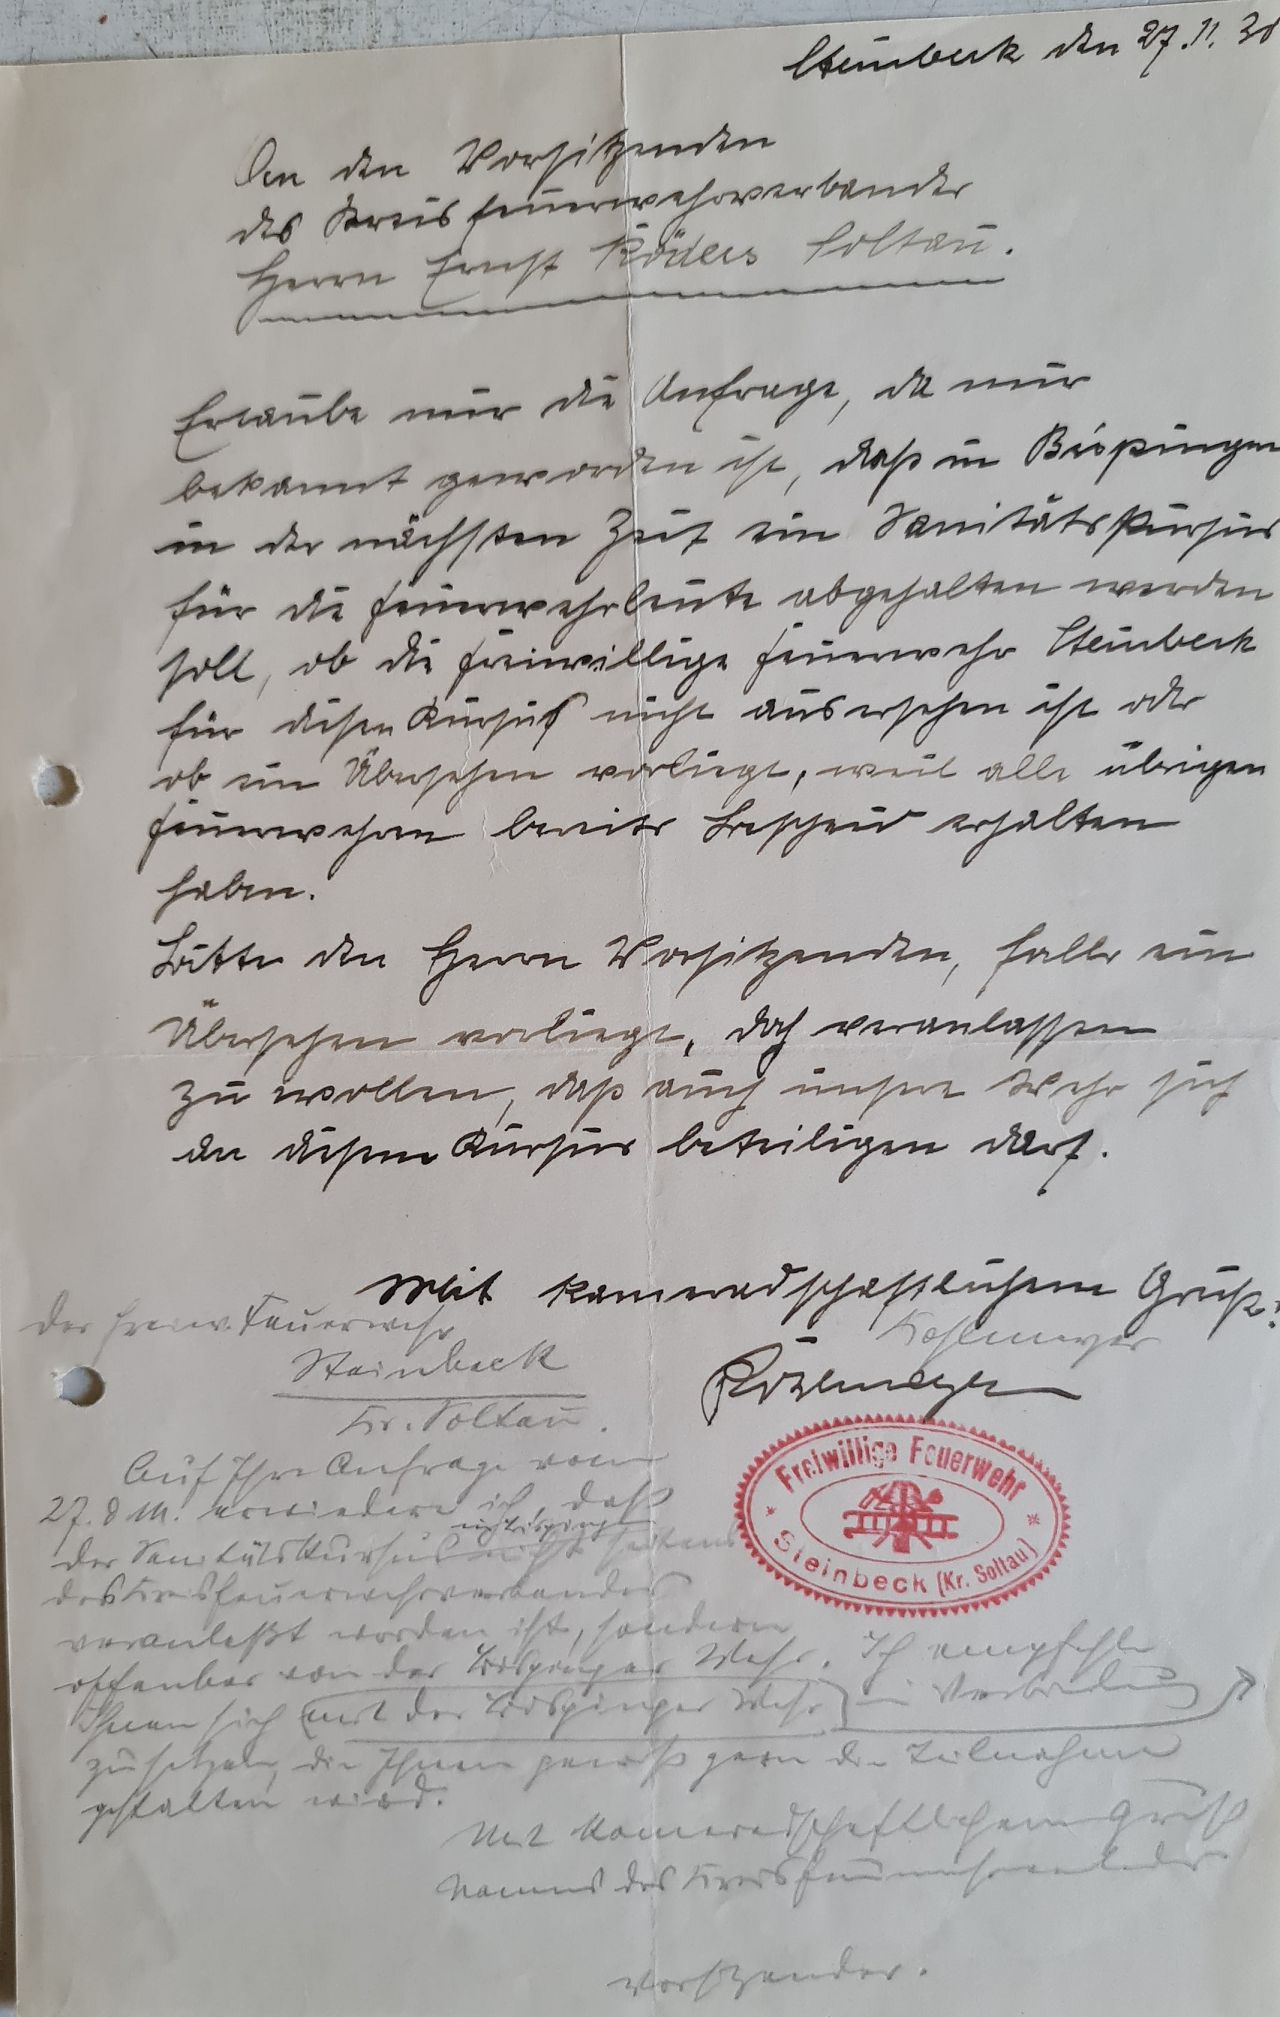 Steinbeck den 27.11.30
An den Vorsitzenden
des Kreisfeuerwehrverbandes
Herrn Ernst Röders Soltau.
Erlaube mir die Anfrage, da mir
bekannt geworden ist, daß in Bispingen
in der nächsten Zeit ein Sanitätskursus
für die Feuerwehrleute abgehalten werden
soll, ob die Freiwillige Feuerwehr Steinbeck
für diesen Kursus nicht ausersehen ist oder
ob ein Übersehen vorliegt, weil alle übrigen
Feuerwehren bereits Bescheid erhalten
haben.
Bitte den Herrn Vorsitzenden, falls ein
Übersehen vorliegt, doch veranlassen
zu wollen, daß auch unsere Wehr sich
an diesem Kursus beteiligen darf.
Mit kameradschaftlichem Gruß!
Kohlmeyer
Kohlmeyer
Freiwillige Feuerwehr
Steinbeck (Kr. Soltau)
Der Freiw. Feuerwehr
Steinbeck
Kr. Soltau.
Auf Ihre Anfrage vom
27. d. M. erwiedere ich, daß
der Sanitätskursus nicht seitens
des Kreisfeuerwehrverbandes
veranlaßt worden ist, sondern
offenbar von der Bispinger Wehr. Ich empfehle
Ihnen sich mit der Bispinger Wehr in Verbindung
zu setzen, die Ihnen gewiß gern die Teilnahme
gestatten wird.
Mit kameradschaftlichem Gruß
Namens des Kreisfeuerwehrverbandes
Vorsitzender.